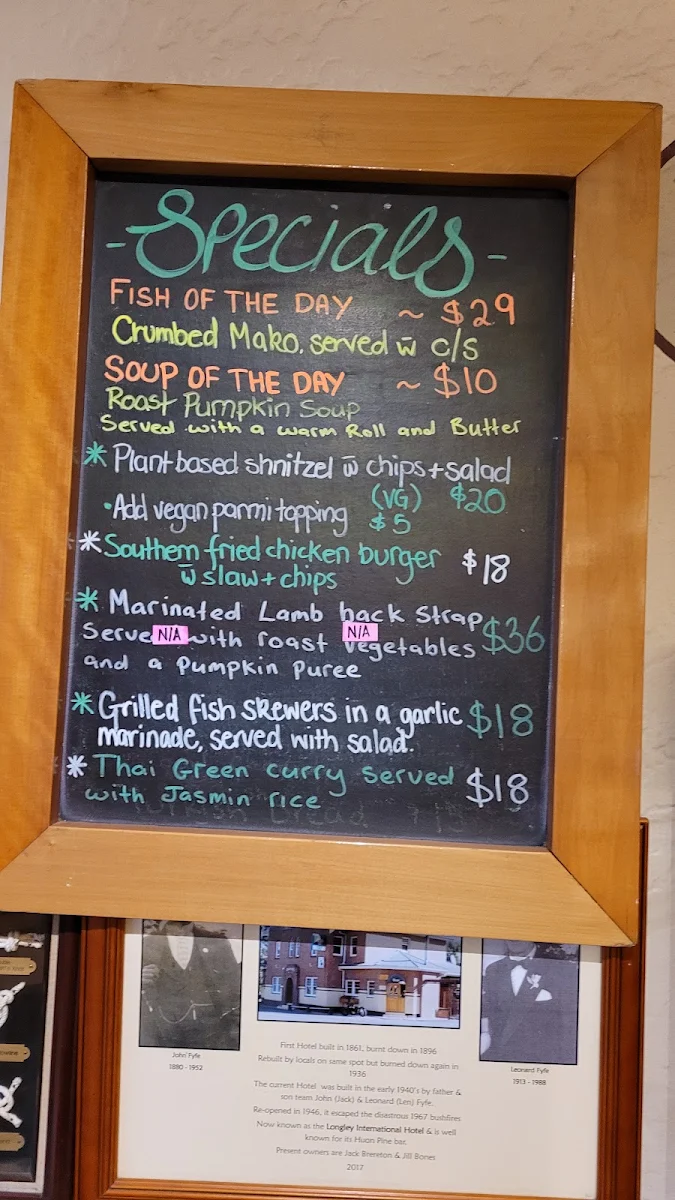 -Specials-
FISH OF THE DAY ~ $29
Crumbed Mako. served w̄ c/s
SOUP OF THE DAY ~ $10
Roast Pumpkin Soup
Served with a warm Roll and Butter
* Plant based shnitzel w̄ chips + salad
(VG) $20
• Add vegan parmi topping $5
* Southern fried chicken burger $18
w̄ slaw + chips
* Marinated Lamb back Strap $36
Serve N/A with roast N/A vegetables
and a Pumpkin Puree
* Grilled fish skewers in a garlic $18
marinade, served with salad.
* Thai Green curry served $18
with Jasmin rice
John Fyfe
1880 - 1952
Leonard Fyfe
1913 - 1988
First Hotel built in 1861, burnt down in 1896
Rebuilt by locals on same spot but burned down again in
1936
The current Hotel was built in the early 1940's by father &
son team John (Jack) & Leonard (Len) Fyfe.
Re-opened in 1946, it escaped the disastrous 1967 bushfires
Now known as the Longley International Hotel & is well
known for its Huon Pine bar.
Present owners are Jack Brereton & Jill Bones
2017